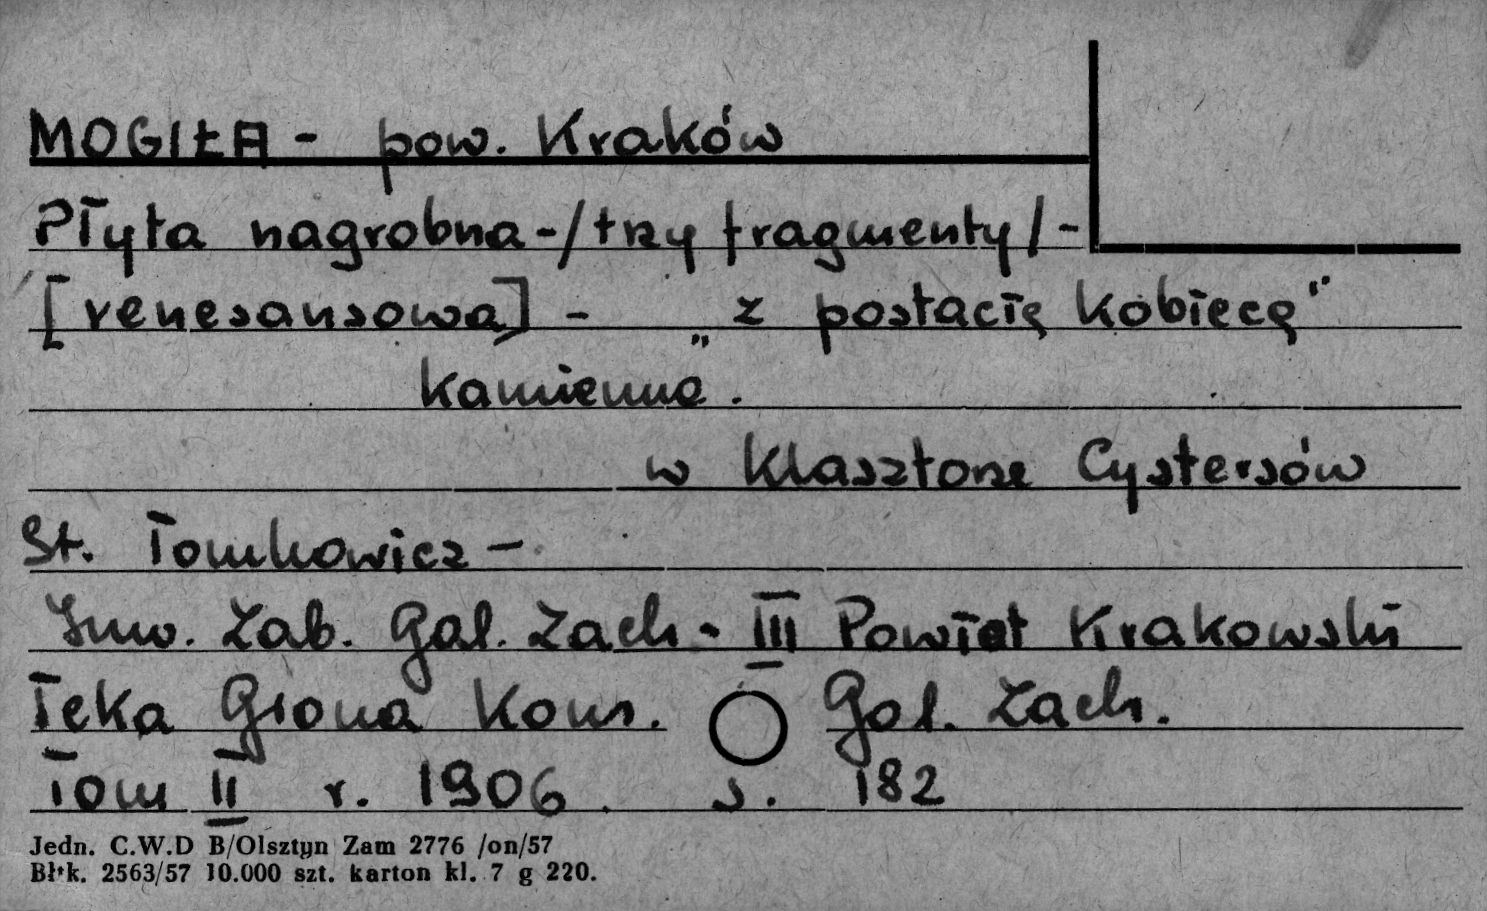 MOGIŁA - pow. Kraków
Płyta nagrobna - /trzy fragmenty/ -
[renesansowa] - „z postacią kobiecą"
kamienna.
w klasztorze Cystersów
St. Tomkowicz -
Inw. Zab. Gal. Zach. III Powiat Krakowski
Teka Grona Kons. Gal. Zach.
Tom II r. 1906. s. 182
Jedn. C.W.D B/Olsztyn Zam 2776 /on/57
Błk. 2563/57 10.000 szt. karton kl. 7 g 220.